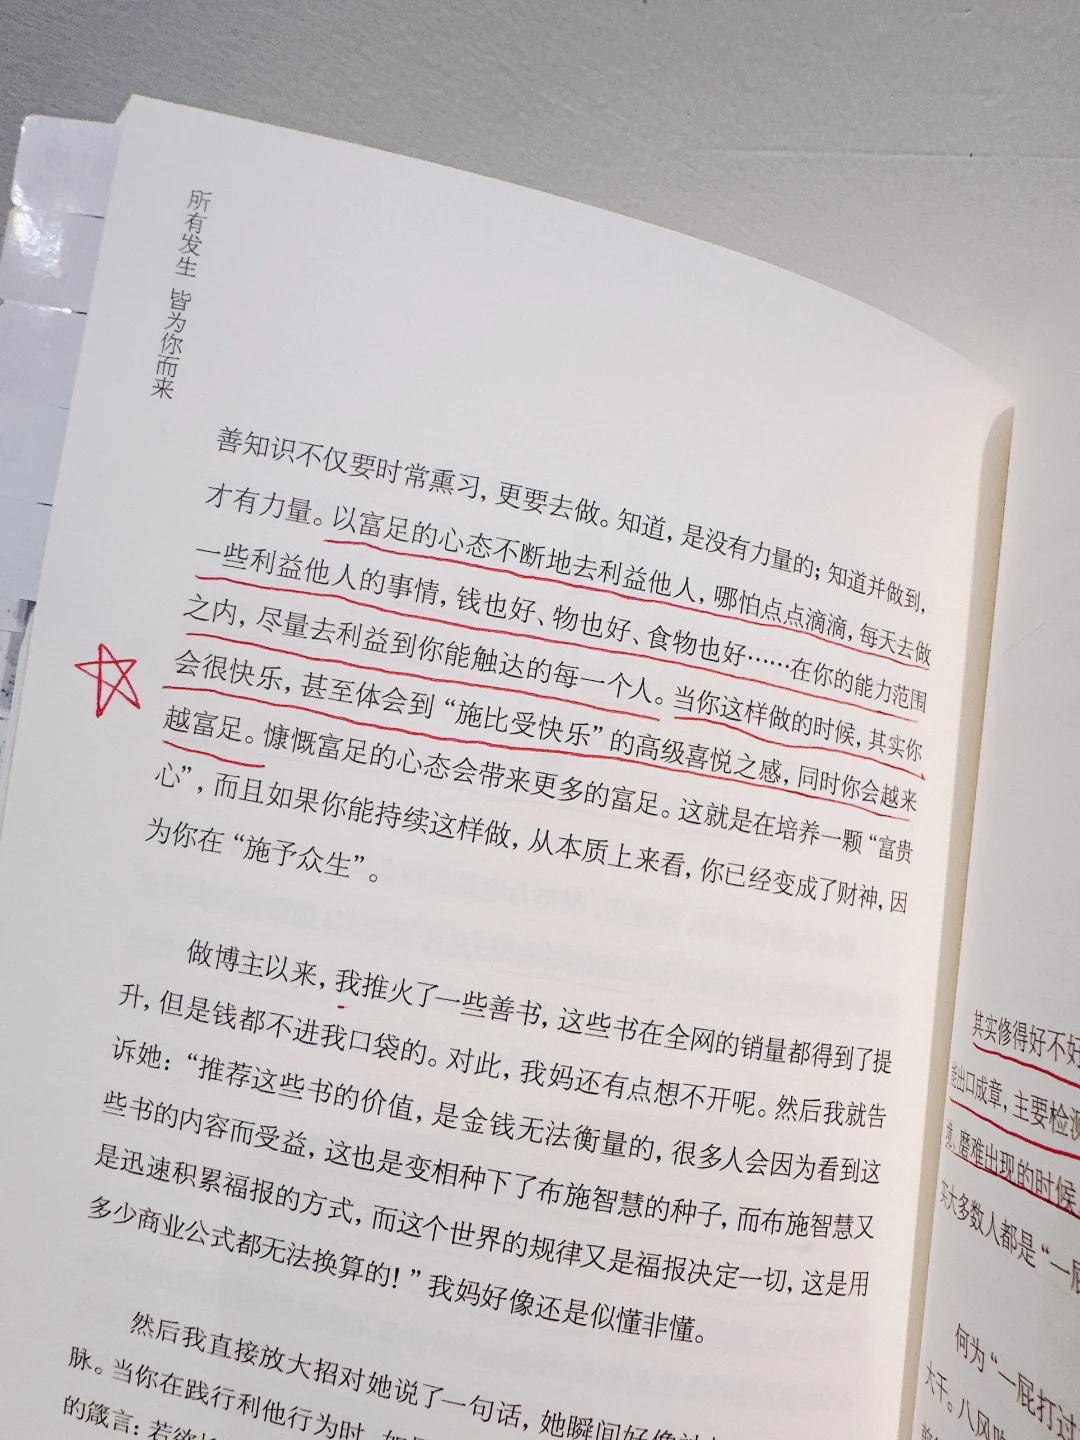 所有发生 皆为你而来
善知识不仅要时常熏习，更要去做。知道，是没有力量的；知道并做到，
才有力量。以富足的心态不断地去利益他人，哪怕点点滴滴，每天去做
一些利益他人的事情，钱也好、物也好、食物也好……在你的能力范围
之内，尽量去利益到你能触达的每一个人。当你这样做的时候，其实你
会很快乐，甚至体会到“施比受快乐”的高级喜悦之感，同时你会越来
越富足。慷慨富足的心态会带来更多的富足。这就是在培养一颗“富贵
心”，而且如果你能持续这样做，从本质上来看，你已经变成了财神，因
为你在“施予众生”。
做博主以来，我推火了一些善书，这些书在全网的销量都得到了提
升，但是钱都不进我口袋的。对此，我妈还有点想不开呢。然后我就告
诉她：“推荐这些书的价值，是金钱无法衡量的，很多人会因为看到这
些书的内容而受益，这也是变相种下了布施智慧的种子，而布施智慧又
是迅速积累福报的方式，而这个世界的规律又是福报决定一切，这是用
多少商业公式都无法换算的！”我妈好像还是似懂非懂。
然后我直接放大招对她说了一句话，她瞬间好像
脉。当你在践行利他行为时，如
的箴言：若欲
其实修得好不好
能出口成章，主要检测
磨难出现的时候
实大多数人都是“一屁
何为“一屁打过
大千。八风吹